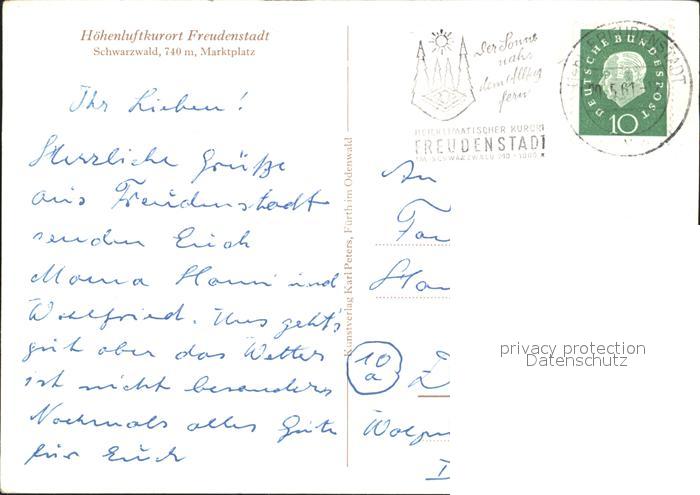 Höhenluftkurort Freudenstadt
Schwarzwald, 740 m, Marktplatz
Ihr Lieben!
Herzliche Grüße
aus Freudenstadt
senden Euch
Mama Hanni und
Wolfried. Uns geht's
gut aber das Wetter
ist nicht besonders
Nochmals alles Gute
für Euch
Kunstverlag Karl Peters, Fürth im Odenwald
Der Sonne
nah
dem Alltag
fern
HEILKLIMATISCHER KURORT
FREUDENSTADT
IM SCHWARZWALD 740-1000 m
FREUDENSTADT
DEUTSCHE BUNDESPOST
10
An
Fa
Ha
10
a
privacy protection
Datenschutz